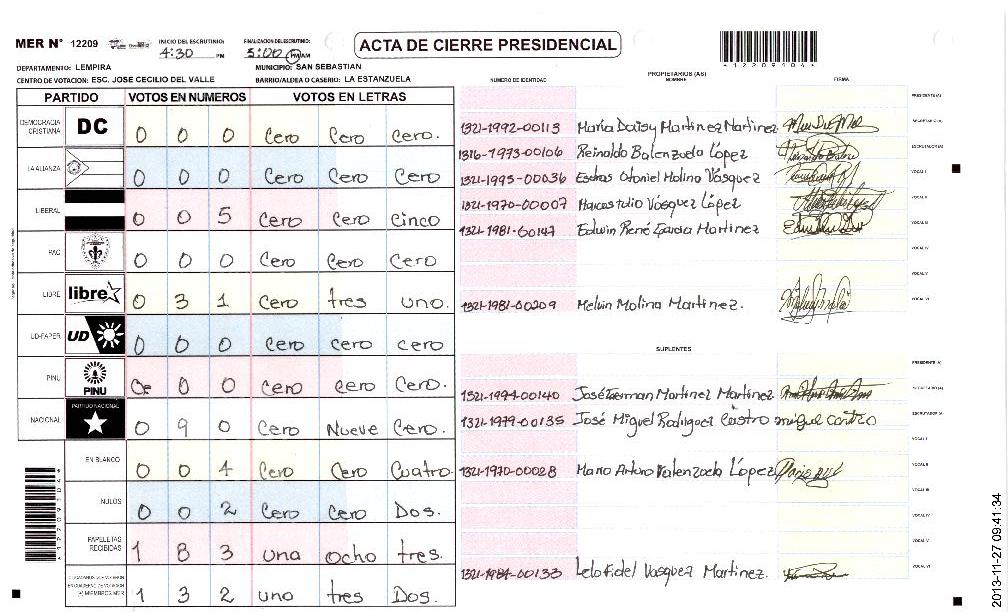 MER N° 12209
INICIO DEL ESCRUTINIO: 4:30 PM
FINALIZACION DEL ESCRUTINIO: 5:00 PM AM
ACTA DE CIERRE PRESIDENCIAL
*12209104*
DEPARTAMENTO: LEMPIRA
MUNICIPIO: SAN SEBASTIAN
CENTRO DE VOTACION: ESC. JOSE CECILIO DEL VALLE
BARRIO/ALDEA O CASERIO: LA ESTANZUELA
PARTIDO VOTOS EN NUMEROS VOTOS EN LETRAS
DEMOCRACIA CRISTIANA DC 0 0 0 Cero Cero Cero.
LA ALIANZA 0 0 0 Cero Cero Cero
LIBERAL 0 0 5 Cero Cero Cinco
PAC 0 0 0 Cero Cero Cero
LIBRE libre 0 3 1 Cero tres uno.
UD-FAPER UD 0 0 0 Cero Cero Cero
PINU PINU 0 0 Cero Cero Cero.
NACIONAL PARTIDO NACIONAL 0 9 0 Cero Nueve Cero.
EN BLANCO 0 0 4 Cero Cero Cuatro.
NULOS 0 0 2 Cero Cero Dos.
PAPELETAS RECIBIDAS 1 8 3 una ocho tres.
CIUDADANOS QUE VOTARON EN CUADERNO DE VOTACION (+) MIEMBROS MER 1 3 2 uno tres Dos.
PROPIETARIOS (AS)
NUMERO DE IDENTIDAD NOMBRE FIRMA
PRESIDENTE (A)
1321-1992-00113 Maria Daisy Martinez Martinez SECRETARIO (A)
1316-1973-00106 Reinaldo Balenzuela López ESCRUTADOR (A)
1321-1995-00036 Otoniel Molina Vásquez VOCAL I
1321-1970-00007 Vásquez López VOCAL II
1321-1981-00147 Edwin René Garcia Martinez VOCAL III
VOCAL IV
VOCAL V
1321-1981-00209 Melvin Molina Martinez. VOCAL VI
SUPLENTES
PRESIDENTE (A)
1321-1994-00140 José German Martinez Martinez SECRETARIO (A)
1321-1979-00135 José Miguel Rodriguez Castro miguel castro ESCRUTADOR (A)
VOCAL I
1321-1970-00028 Mario Arturo Valenzuela López VOCAL II
VOCAL III
VOCAL IV
VOCAL V
1321-1984-00133 Lelo Fidel Vasquez Martinez. VOCAL VI
*12209104*
2013-11-27 09:41:34